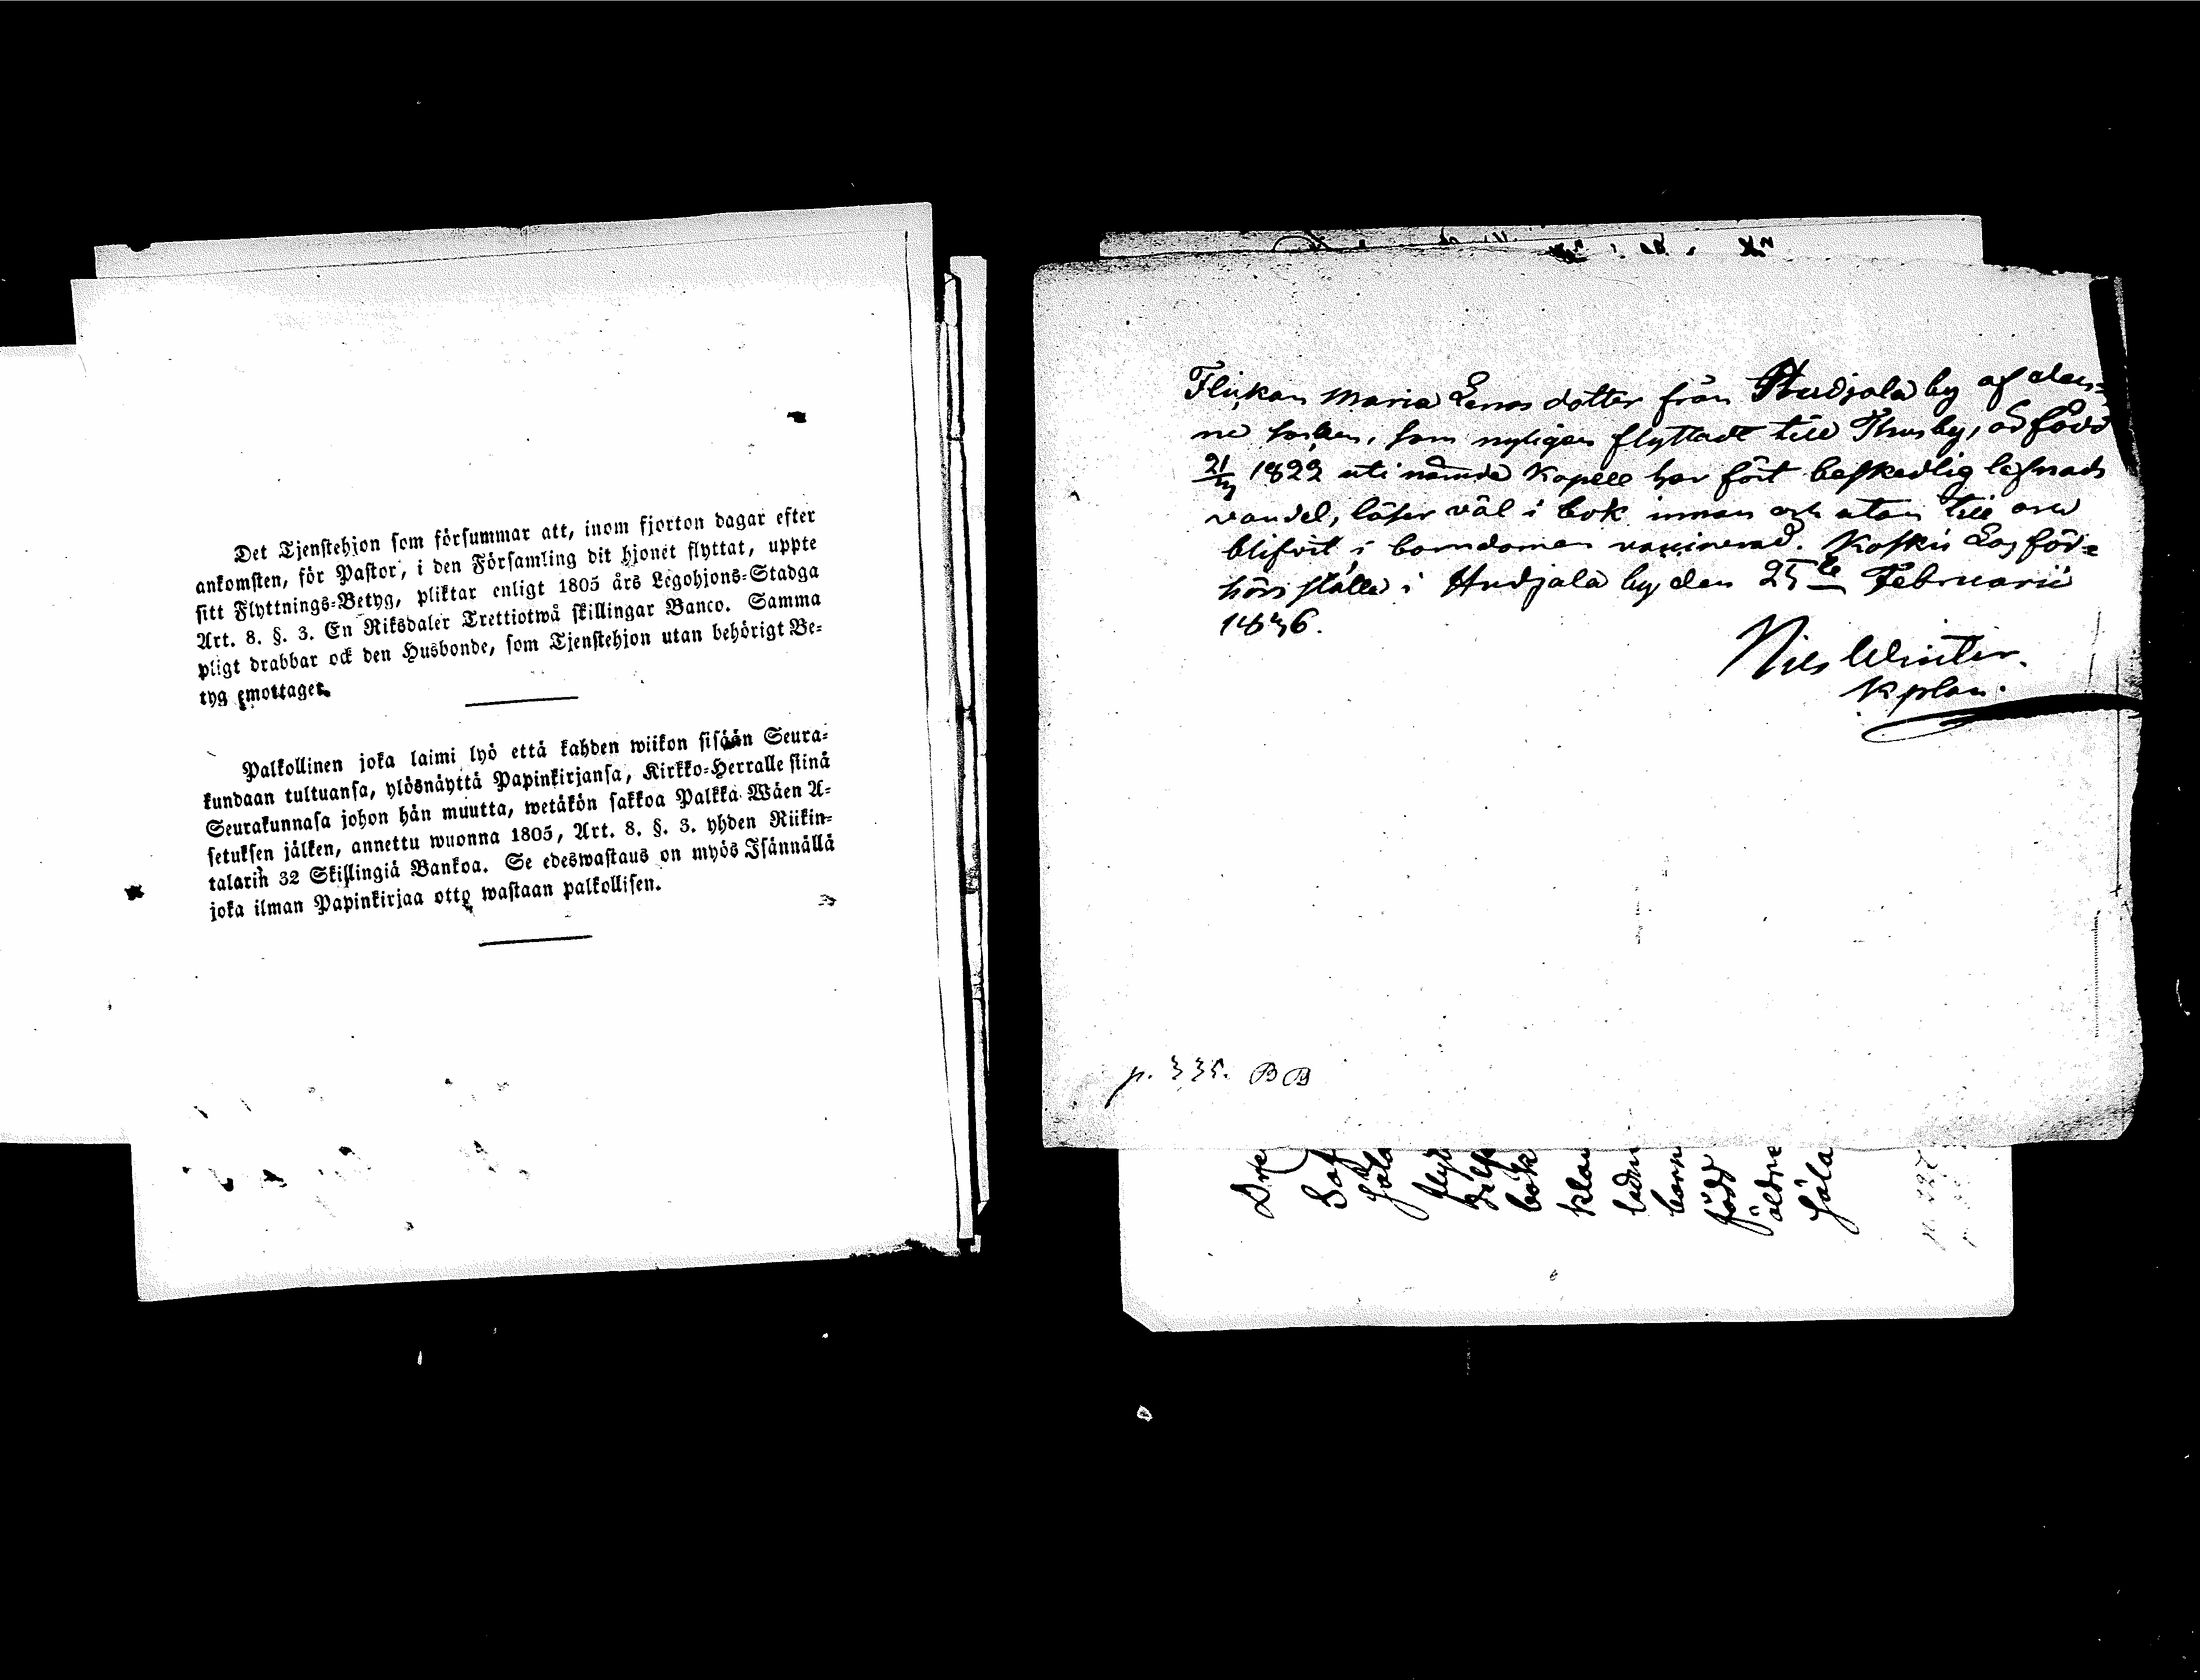 Det Tjenstehjon som försummar att, inom fjorton dagar efter
ankomsten, för Pastor, i den Församling dit hjonet flyttat, uppte
sitt Flyttnings-Betyg, pliktar enligt 1805 års Legohjons-Stadga
Art. 8. §. 3. En Riksdaler Trettiotwå skillingar Banco. Samma
pligt drabbar ock den Husbonde, som Tjenstehjon utan behörigt Be-
tyg emottager.
Palkollinen joka laimi lyö että kahden wiikon sisään Seura-
kundaan tultuansa, ylösnäyttä Papinkirjansa, Kirkko-Herralle siinä
Seurakunnasa johon hän muutta, wetäkön sakkoa Palkka Wäen A-
setuksen jälken, annettu wuonna 1805, Art. 8. §. 3. yhden Riikin-
talarin 32 Skillingiä Bankoa. Se edeswastaus on myös Isännällä
joka ilman Papinkirjaa otto wastaan palkollisen.
Flickan Maria dotter från by af den-
ne socken, som nyligen flyttadt till Thusby, född
21 1822 uti nämnde Kapell har fört beskedlig lefnads
vandel, läser väl i bok innan och utan till
blifvit i barndomen vaccinerad. Koskis Läsför-
hörs ställe i Hudjala by den 25te Februarii
1836.
Nils Winter.
Kplan.
p. 335. BB
bok
född
äldre